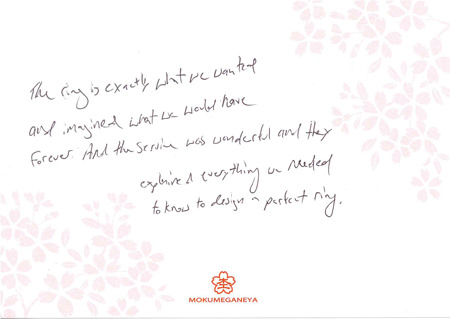 The ring is exactly what we wanted
and imagined what we would have
forever. And the service was wonderful and they
explained everything we needed
to know to design a perfect ring.
MOKUMEGANEYA